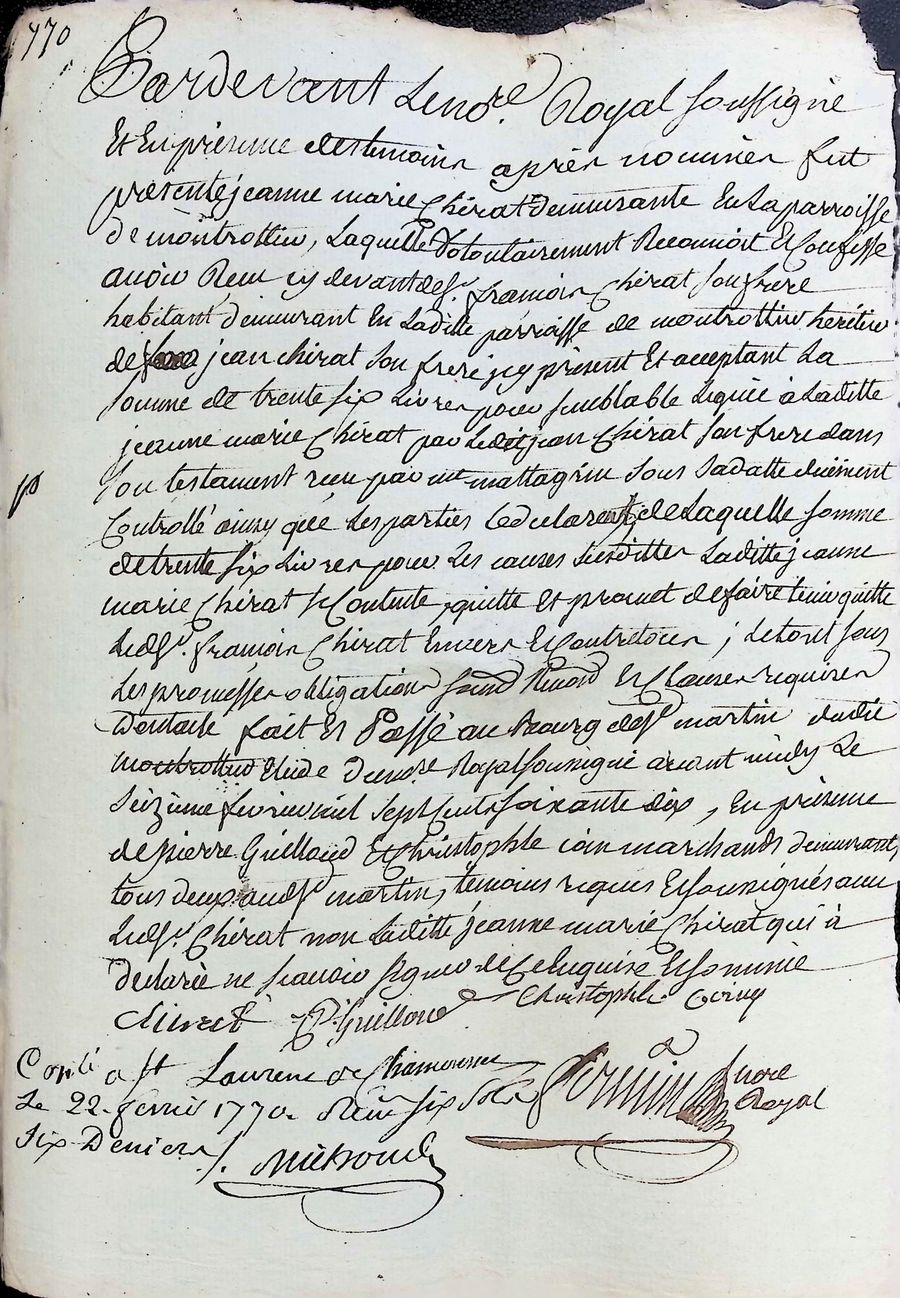 770
Pardevant Le no.re Royal soussigné
Et En présence des temoins après nommés fut
présente jeanne marie Chirat demeurante En La parroisse
de montrottier, Laquelle volontairement Reconnoit Et Confesse
avoir Recu cy devant de Sr. françois Chirat son frere
habitant demeurant En Laditte parroisse de montrottier heritier
de jean chirat son frere icy present Et acceptant La
somme de trente six Livres pour semblable Léguée à Laditte
jeanne marie Chirat par Ledit jean Chirat son frere dans
son testament recu par me mattagrin sous sa datte duement
Controllé ainsy que Les parties Le declarent, de Laquelle somme
de trente six Livres pour Les causes susdittes Laditte jeanne
marie Chirat se Contente, quitte Et promet de faire tenir quitte
Ledt Sr. françois Chirat Envers Et Contre tous ; Le tout sous
Les promesses obligations Et Clauses requises
Dont acte fait Et Passé au Bourg de St martin dudit
montrottier Etude du no.re Royal soussigné avant midy Le
seizieme fevrier mil sept cents soixante dix, En présence
de pierre Guilloud Et Christophle coin marchands demeurants
tous deux audt St martin, temoins requis Et soussignés avec
Ledt Sr. Chirat non Laditte jeanne marie Chirat qui à
declaré ne sçavoir signer de Ce Enquise Et sommée
Chirat P. Guilloud Christophle
Conlé a St Laurent de Chamousset
Le 22. fevrier 1770. Recu six sols
six Deniers /.
nore
Royal